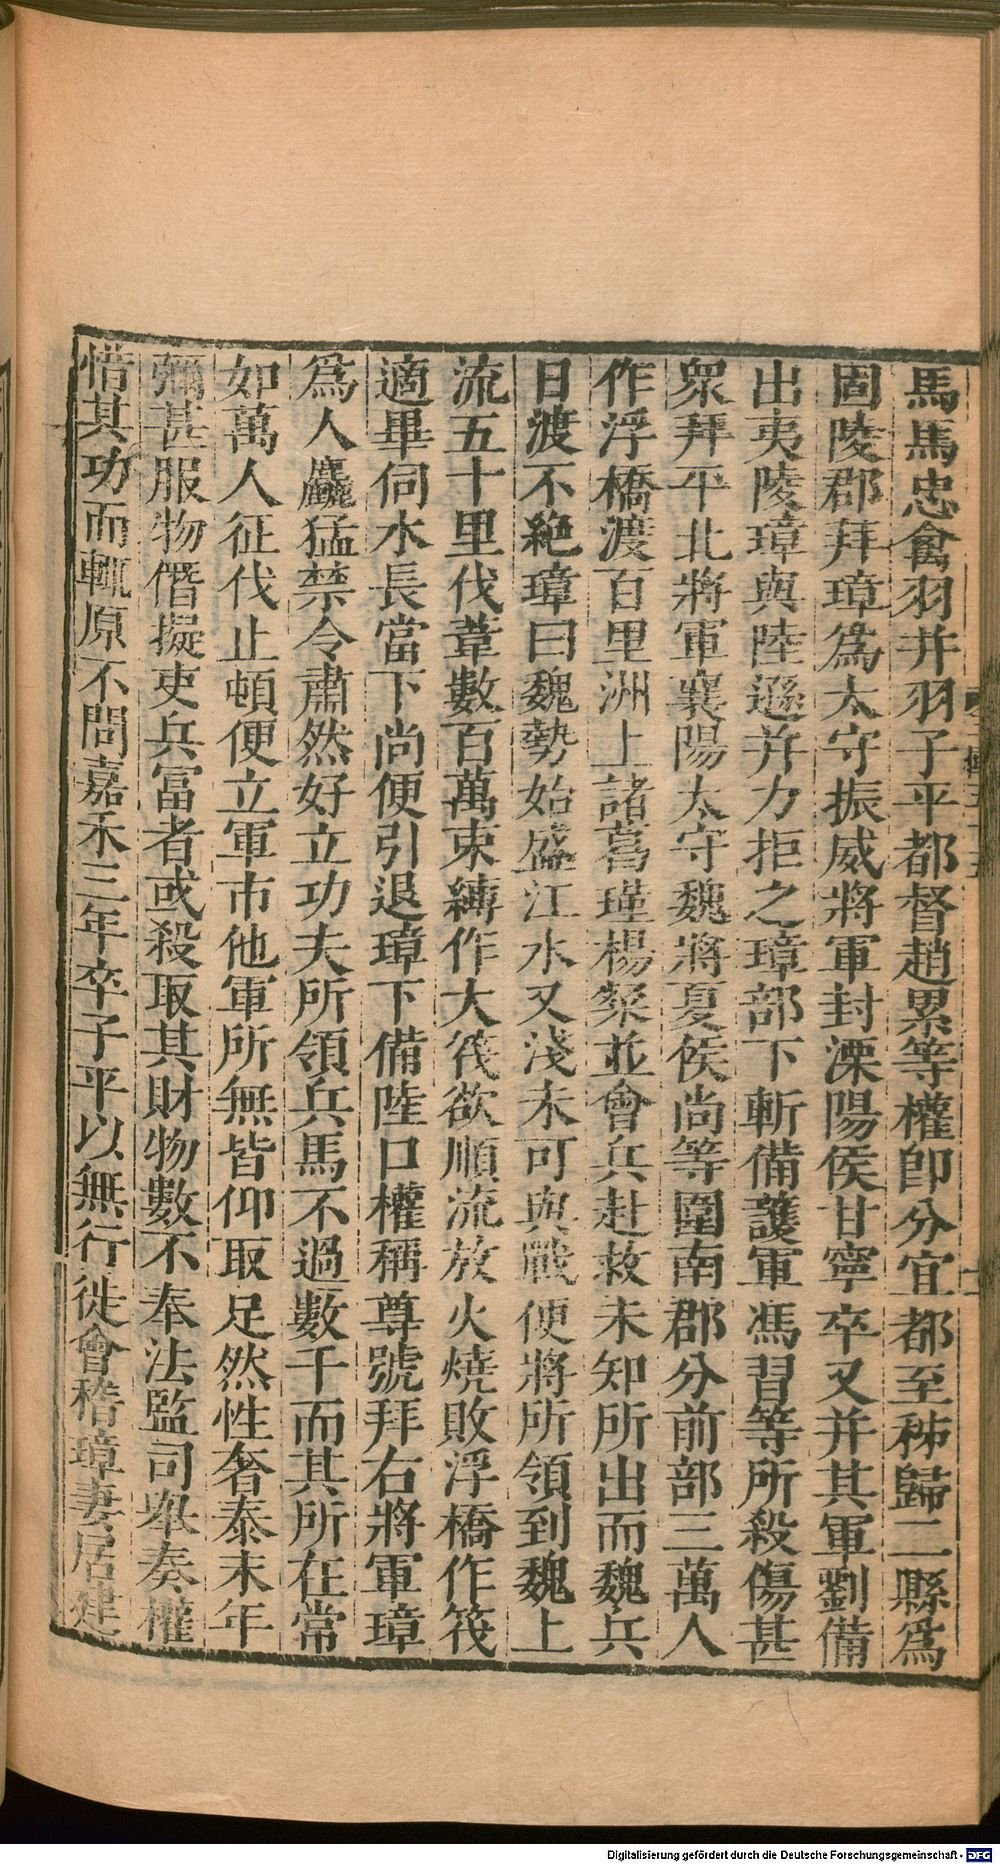 馬馬忠禽羽并羽子平都督趙累等權卽分宜都至秭歸二縣爲
固陵郡拜璋爲太守振威將軍封溧陽侯甘寧卒又并其軍劉備
出夷陵璋與陸遜并力拒之璋部下斬備護軍馮習等所殺傷甚
衆拜平北將軍襄陽太守魏將夏侯尚等圍南郡分前部三萬人
作浮橋渡百里洲上諸葛瑾楊粲並會兵赴救未知所出而魏兵
日渡不絶璋曰魏勢始盛江水又淺未可與戰便將所領到魏上
流五十里伐葦數百萬束縛作大筏欲順流放火燒敗浮橋作筏
適畢伺水長當下尚便引退璋下備陸口權稱尊號拜右將軍璋
爲人麤猛禁令肅然好立功夫所領兵馬不過數千而其所在常
如萬人征伐止頓便立軍市他軍所無皆仰取足然性奢泰末年
彌甚服物僭擬吏兵富者或殺取其財物數不奉法監司舉奏權
惜其功而輒原不問嘉禾三年卒子平以無行徙會稽璋妻居建
Digitalisierung gefördert durch die Deutsche Forschungsgemeinschaft - DFG